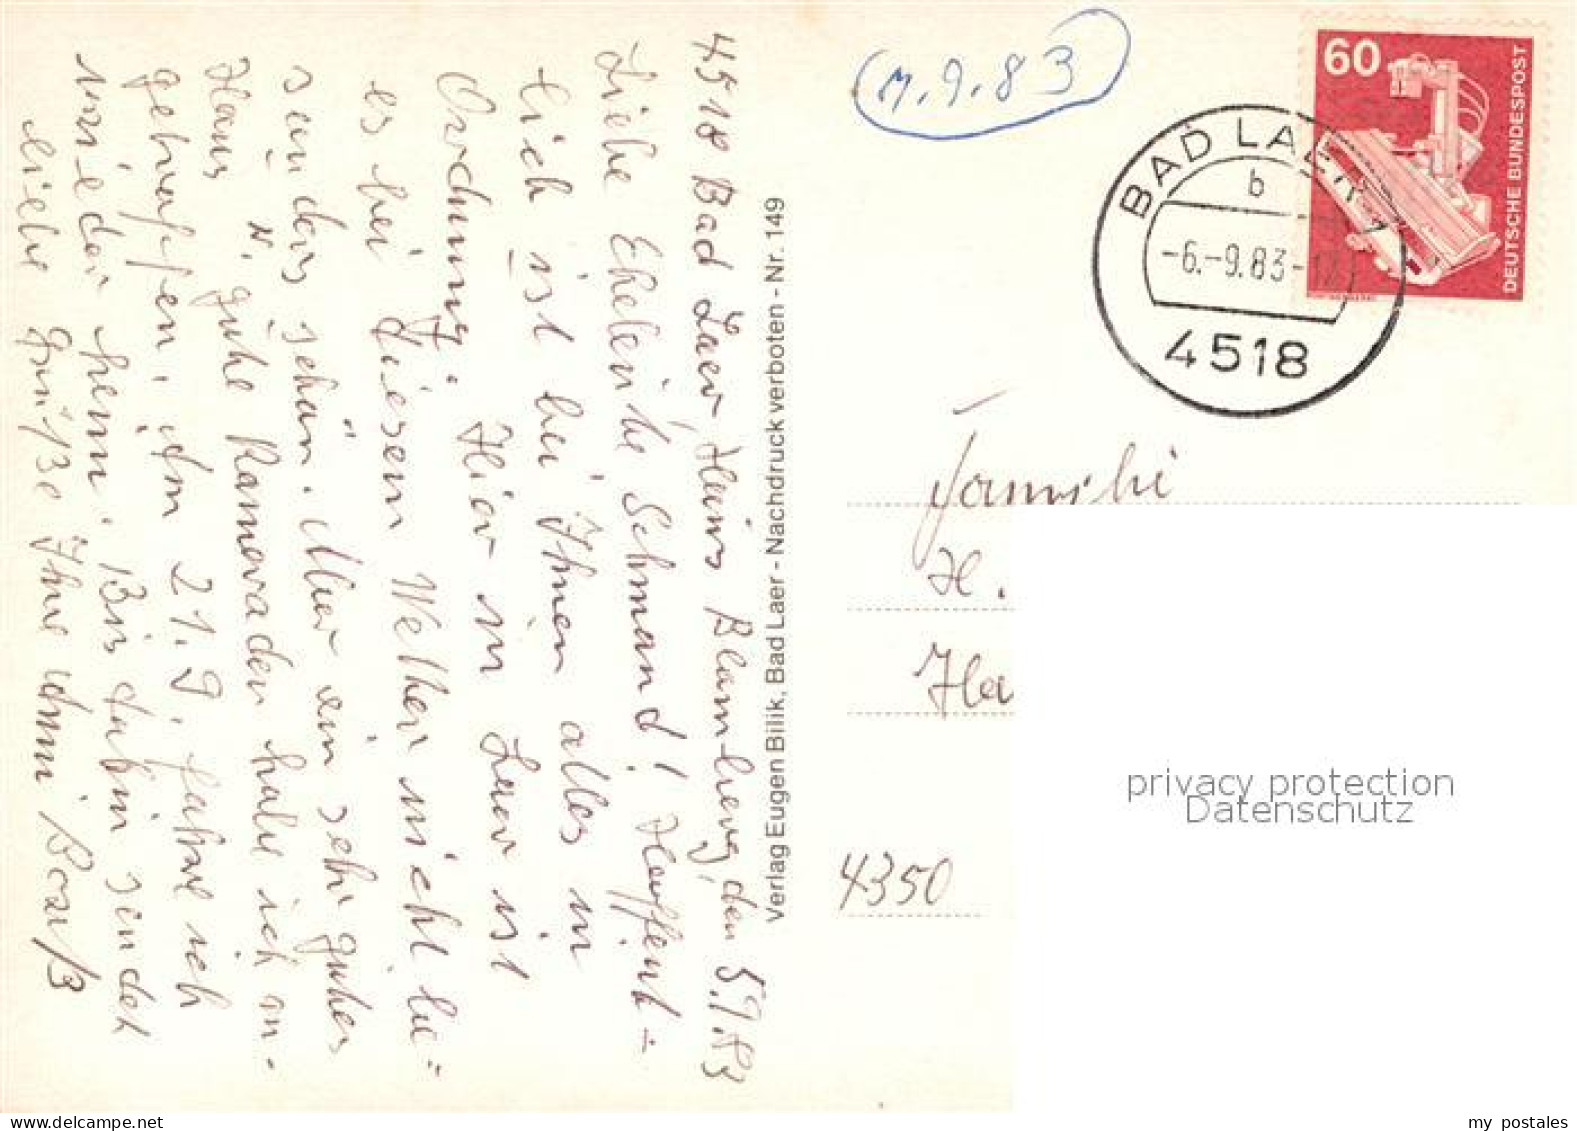 4518 Bad Laer, Haus Blomberg, den 5.9.83
Liebe Eheleute Schmand! Hoffent=
lich ist bei Ihnen alles in
Ordnung. Hier in Laer ist
es bei diesem Wetter nicht be=
sonders schön. Aber ein sehr gutes
Haus u. gute Kameraden habe ich an-
getroffen. Am 21.9. fahre ich
wieder heim. Bis dahin sendet
liebe Grüße Ihre
Verlag Eugen Bilik, Bad Laer - Nachdruck verboten - Nr. 149
7.9.83
60
DEUTSCHE BUNDESPOST
BAD LAER 1
b
-6.-9.83-12
4518
Familie
H.
Ha
4350
privacy protection
Datenschutz
my postales